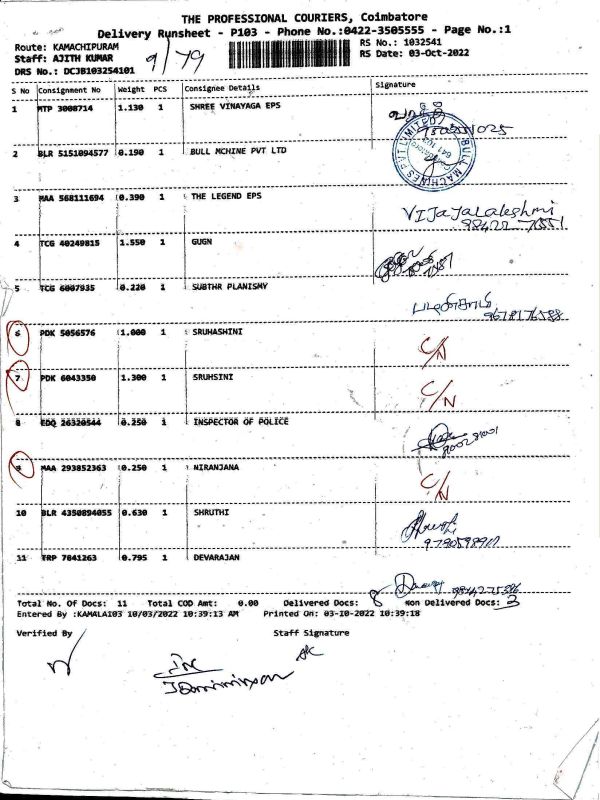 THE PROFESSIONAL COURIERS, Coimbatore
Delivery Runsheet - P103 - Phone No.:0422-3505555 - Page No.:1
Route: KAMACHIPURAM
RS No.: 1032541
Staff: AJITH KUMAR
9/79
RS Date: 03-Oct-2022
DRS No.: DCJB103254101
S No Consignment No Weight PCS Consignee Details Signature
1 MTP 3008714 1.130 1 SHREE VINAYAGA EPS
2 BLR 5151094577 0.190 1 BULL MCHINE PVT LTD
BULL MACHINES PVT LIMITED
3 MAA 568111694 0.390 1 THE LEGEND EPS
VIJAYALAKSHMI
4 TCG 40249815 1.550 1 GUGN
5 TCG 6007935 0.220 1 SUBTHR PLANISMY
9678176588
6 PDK 5056576 1.000 1 SRUHASHINI C/N
7 PDK 6043350 1.300 1 SRUHSINI C/N
8 EDQ 26320544 0.250 1 INSPECTOR OF POLICE
9 MAA 293852363 0.250 1 NIRANJANA C/N
10 BLR 4350894055 0.630 1 SHRUTHI
11 TRP 7041263 0.795 1 DEVARAJAN
Total No. Of Docs: 11 Total COD Amt: 0.00 Delivered Docs: 8 Non Delivered Docs: 3
Entered By :KAMALA103 10/03/2022 10:39:13 AM Printed On: 03-10-2022 10:39:18
Verified By Staff Signature